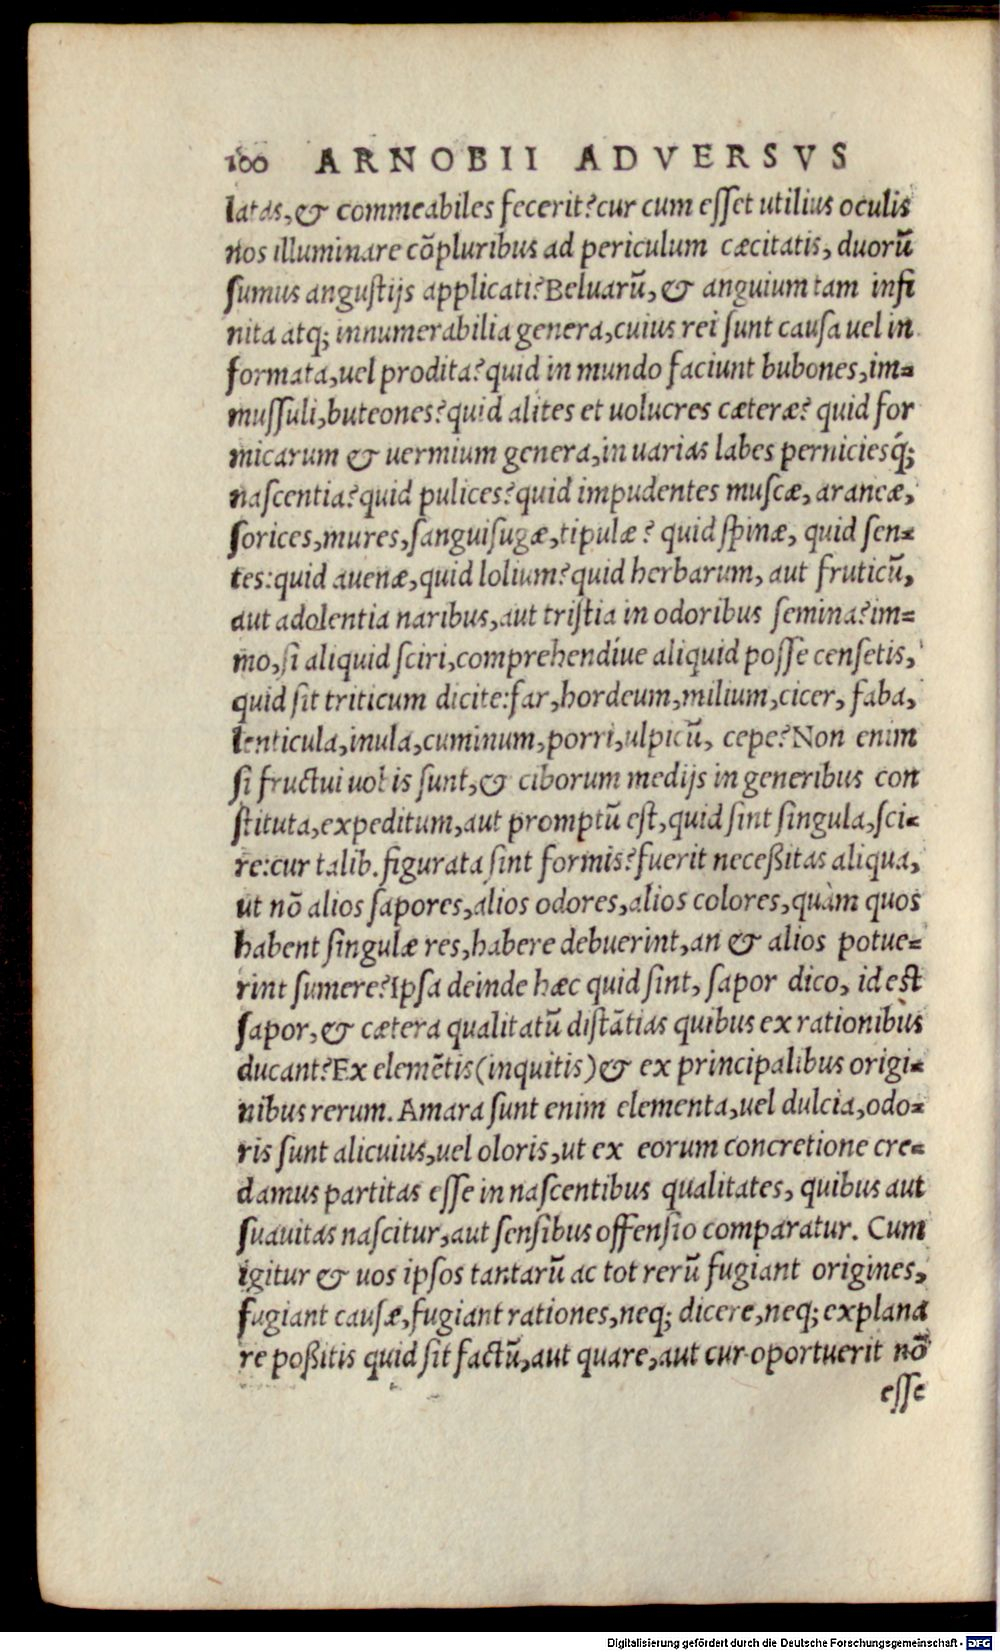 100 ARNOBII ADVERSVS
latas, & commeabiles fecerit? cur cum eſſet utilius oculis
nos illuminare cõpluribus ad periculum cæcitatis, duorũ
ſumus anguſtijs applicati? Beluarũ, & anguium tam infi
nita atq; innumerabilia genera, cuius rei ſunt cauſa uel in
formata, uel prodita? quid in mundo faciunt bubones, im=
muſſuli, buteones? quid alites et uolucres cæteræ? quid for
micarum & uermium genera, in uarias labes perniciesq́;
naſcentia? quid pulices? quid impudentes muſcæ, araneæ,
ſorices, mures, ſanguiſugæ, tipulæ? quid ſpinæ, quid ſen=
tes: quid auenæ, quid lolium? quid herbarum, aut fruticũ,
aut adolentia naribus, aut triſtia in odoribus ſemina? im=
mo, ſi aliquid ſciri, comprehendíue aliquid poſſe cenſetis,
quid ſit triticum dicite: far, hordeum, milium, cicer, faba,
lenticula, inula, cuminum, porri, ulpicũ, cepe? Non enim
ſi fructui uobis ſunt, & ciborum medijs in generibus con
ſtituta, expeditum, aut promptũ eſt, quid ſint ſingula, ſci=
re: cur talib. figurata ſint formis? fuerit neceßitas aliqua,
ut nõ alios ſapores, alios odores, alios colores, quàm quos
habent ſingulæ res, habere debuerint, an & alios potue=
rint ſumere? Ipſa deinde hæc quid ſint, ſapor dico, id eſt
ſapor, & cætera qualitatũ diſtãtias quibus ex rationibus
ducant? Ex elemẽtis (inquitis) & ex principalibus origi=
nibus rerum. Amara ſunt enim elementa, uel dulcia, odo=
ris ſunt alicuius, uel oloris, ut ex eorum concretione cre=
damus partitas eſſe in naſcentibus qualitates, quibus aut
ſuauitas naſcitur, aut ſenſibus offenſio comparatur. Cum
igitur & uos ipſos tantarũ ac tot rerũ fugiant origines,
fugiant cauſæ, fugiant rationes, neq; dicere, neq; explana
re poßitis quid ſit factũ, aut quare, aut cur oportuerit nõ
eſſe
Digitalisierung gefördert durch die Deutsche Forschungsgemeinschaft - DFG